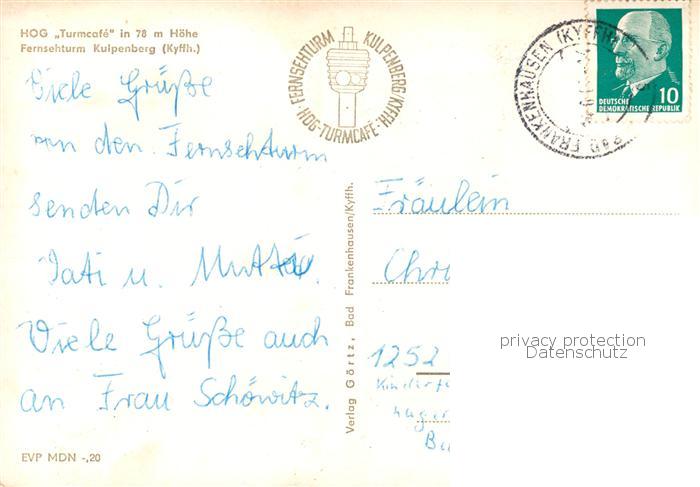 HOG „Turmcafé“ in 78 m Höhe
Fernsehturm Kulpenberg (Kyffh.)
Viele Grüße
von den Fernsehturm
senden Dir
Tati u. Mutti.
Viele Grüße auch
an Frau Schöwitz.
EVP MDN -,20
FERNSEHTURM KULPENBERG/KYFFH.
HOG-TURMCAFÉ
Verlag Görtz, Bad Frankenhausen/Kyffh.
BAD FRANKENHAUSEN (KYFFH)
10
DEUTSCHE
DEMOKRATISCHE REPUBLIK
Fräulein
Chri
1252
Kinderfe
lager
privacy protection
Datenschutz